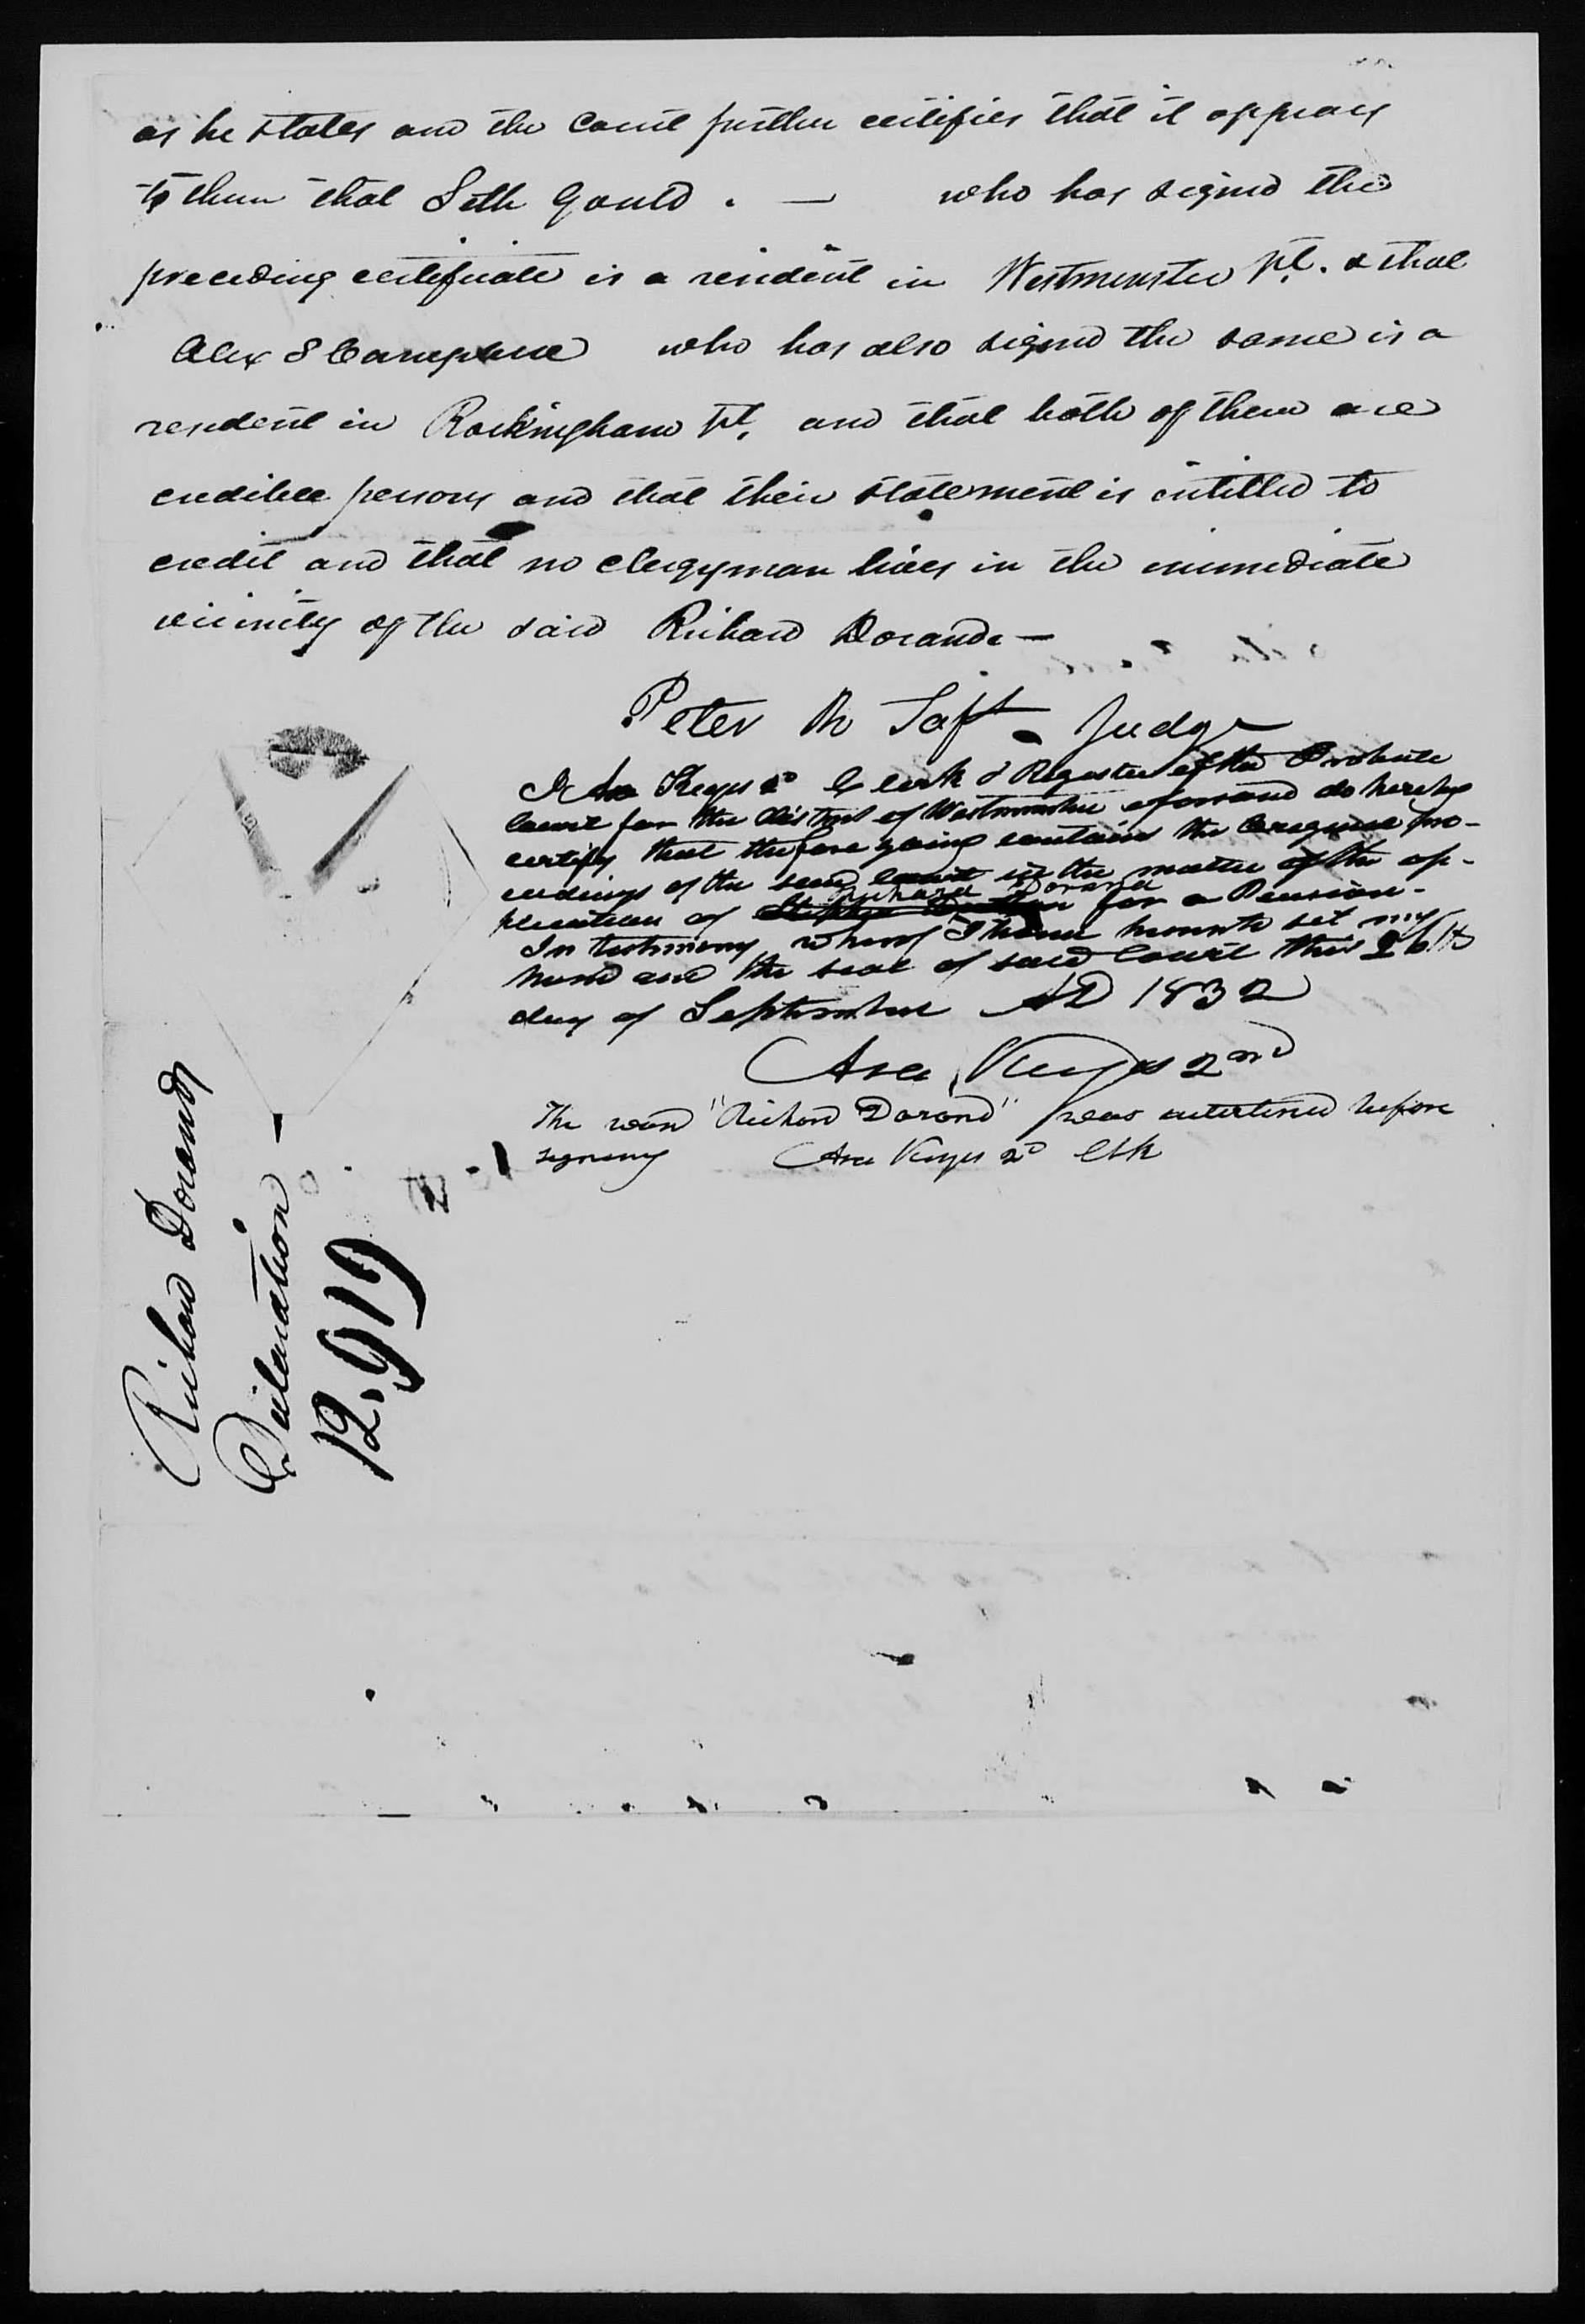 as he states and the Court further certifies that it appears
to them that Seth Gould . — who has signed the
preceding certificate is a resident in Westminster Vt. & that
Alex S Campbell who has also signed the same is a
resident in Rockingham Vt. and that both of them are
credible persons and that their statement is intitled to
credit and that no clergyman lives in the immediate
vicinity of the said Richard Dorand —
Peter R Taft Judge
I Asa Keyes 2d Clerk & Register of the Probate
Court for the district of Westminster aforesaid do hereby
certify that the foregoing contains the original pro-
ceedings of the said Court in the matter of the ap-
Richard Dorand
plication of for a Pension -
In testimony whereof I have hereunto set my
hand and the seal of said Court this 26th
day of September AD 1832
Asa Keyes 2nd
The word "Richard Dorand" was interlined before
signing Asa Keyes 2d Clk
Richard Dorand
Declaration —
12.919